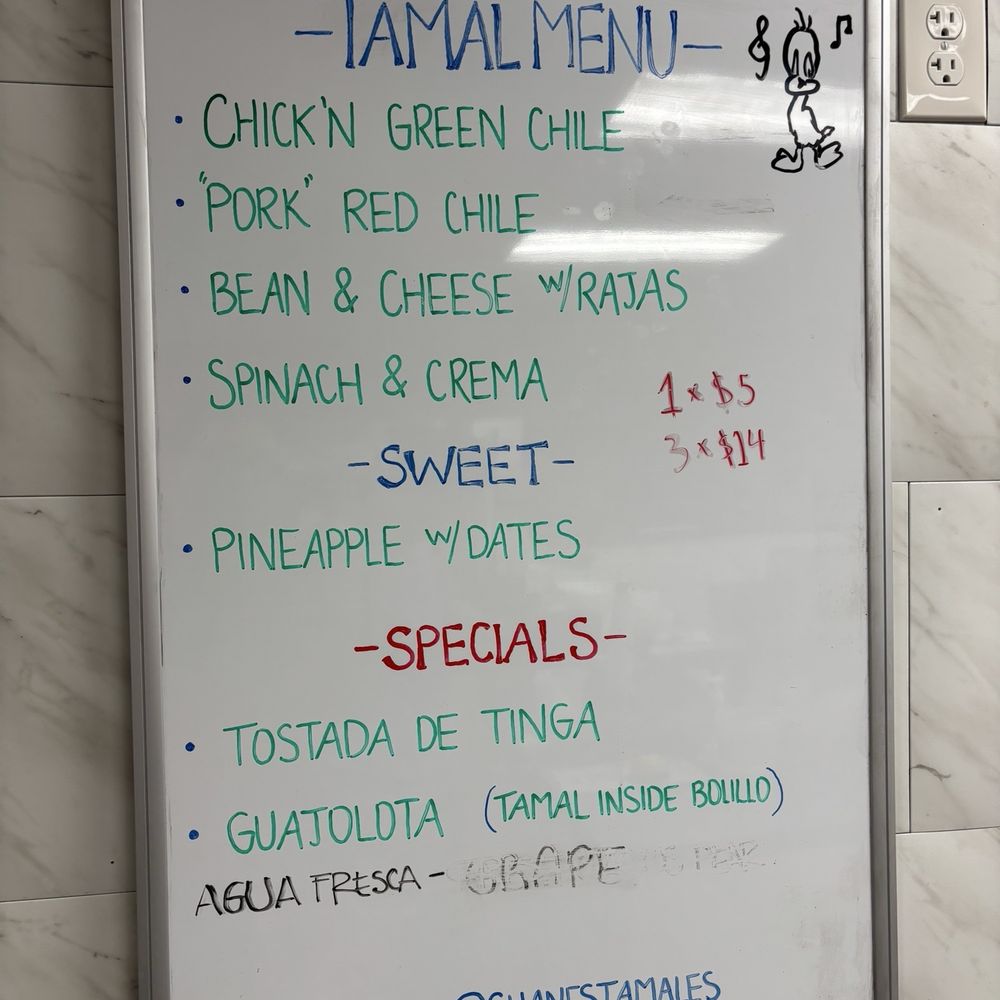 -TAMAL MENU-
• CHICK'N GREEN CHILE
• "PORK" RED CHILE
• BEAN & CHEESE W/RAJAS
• SPINACH & CREMA
1 x $5
3 x $14
-SWEET-
• PINEAPPLE W/DATES
-SPECIALS-
• TOSTADA DE TINGA
• GUAJOLOTA (TAMAL INSIDE BOLILLO)
AGUA FRESCA - GRAPE